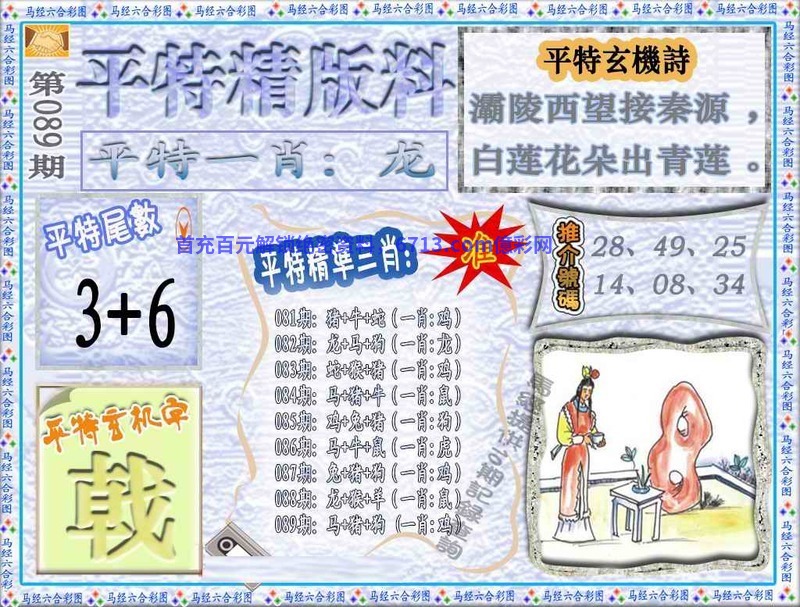 马经六合彩图 马经六合彩图 马经六合彩图 马经六合彩图 马经六合彩图 马经六合彩图 马经六合彩图 马经六合彩图 马经六合彩图
第089期
平特精版料
平特一肖：龙
平特玄機詩
灞陵西望接秦源，
白莲花朵出青莲。
平特尾數
3+6
平特玄机字
戟
平特精準三肖:
准
081期: 猪+牛+蛇 (一肖:鸡)
082期: 龙+马+狗 (一肖:龙)
083期: 蛇+猴+猪 (一肖:鸡)
084期: 马+猪+牛 (一肖:鼠)
085期: 鸡+兔+猪 (一肖:狗)
086期: 马+牛+鼠 (一肖:虎)
087期: 兔+猪+狗 (一肖:鸡)
088期: 龙+猴+羊 (一肖:鼠)
089期: 马+猪+狗 (一肖:鸡)
推介號碼
28、49、25
14、08、34
马经六合彩图 马经六合彩图 马经六合彩图 马经六合彩图 马经六合彩图 马经六合彩图 马经六合彩图 马经六合彩图 马经六合彩图